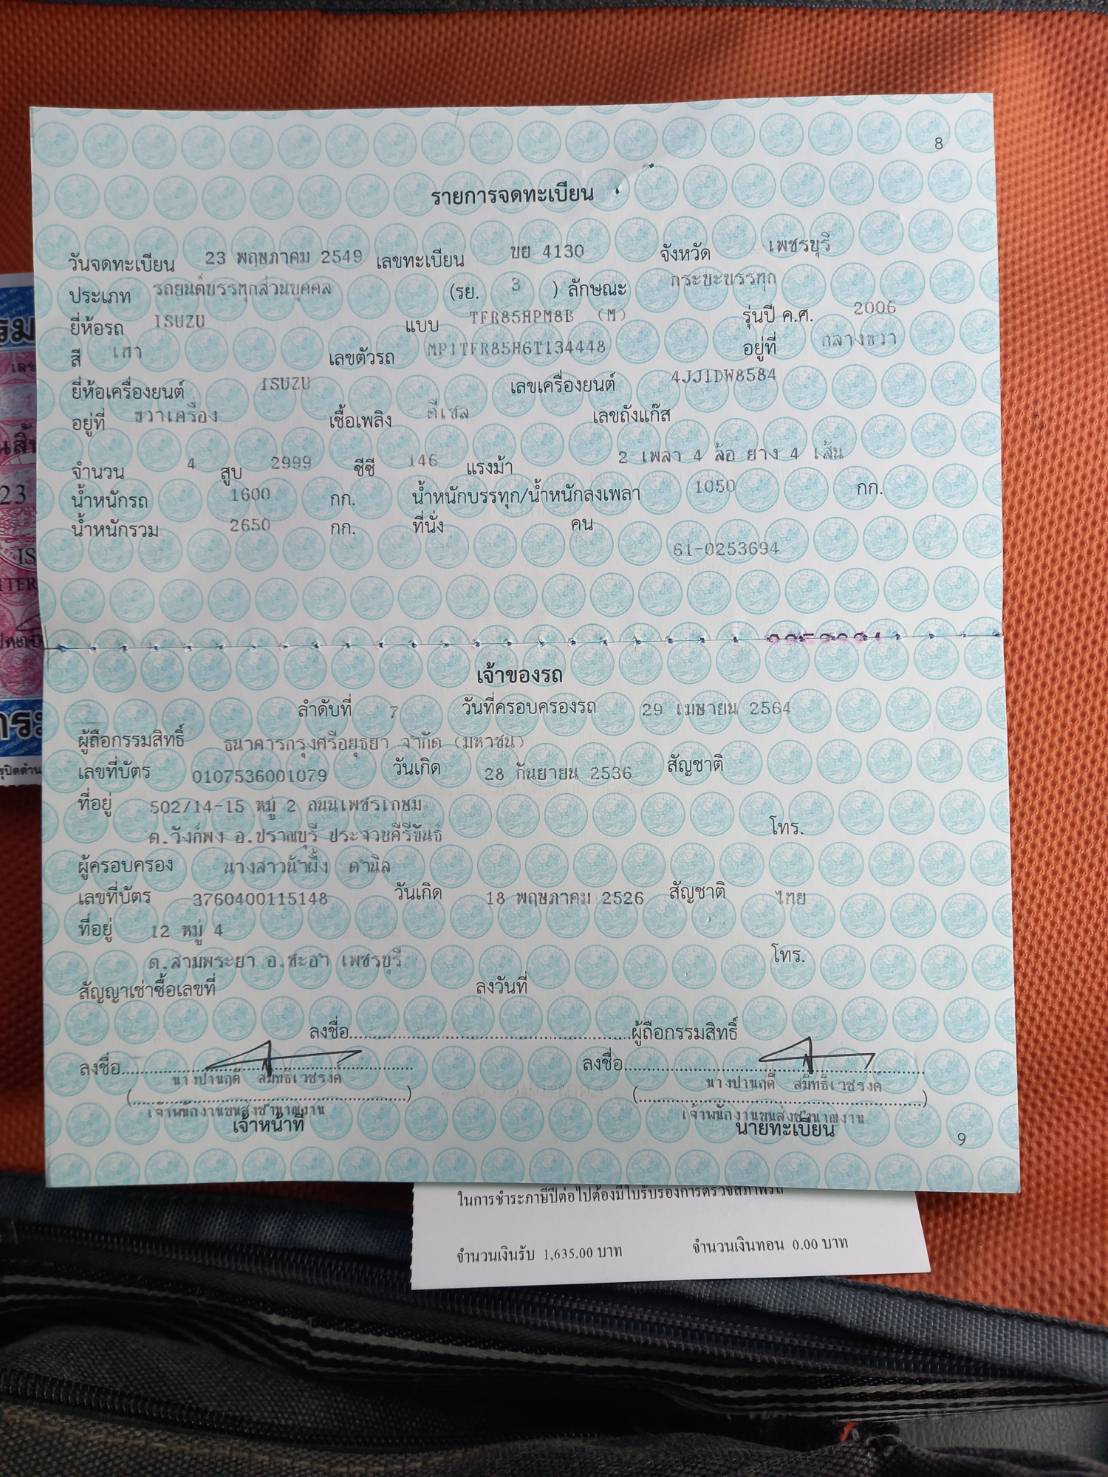 8
รายการจดทะเบียน
วันจดทะเบียน 23 พฤษภาคม 2549 เลขทะเบียน ขย 4130 จังหวัด เพชรบุรี
ประเภท รถยนต์บรรทุกส่วนบุคคล (รย. 3 ) ลักษณะ กระบะบรรทุก
ยี่ห้อรถ ISUZU แบบ TFR85HPM8B (M) รุ่นปี ค.ศ. 2006
สี เทา เลขตัวรถ MP1TFR85H6T134448 อยู่ที่ กลางขวา
ยี่ห้อเครื่องยนต์ ISUZU เลขเครื่องยนต์ 4JJ1DW8584
อยู่ที่ ขวาเครื่อง เชื้อเพลิง ดีเซล เลขถังแก๊ส
จำนวน 4 สูบ 2999 ซีซี 146 แรงม้า 2 เพลา 4 ล้อ ยาง 4 เส้น
น้ำหนักรถ 1600 กก. น้ำหนักบรรทุก/น้ำหนักลงเพลา 1050 กก.
น้ำหนักรวม 2650 กก. ที่นั่ง คน
61-0253694
เจ้าของรถ
ลำดับที่ 7 วันที่ครอบครองรถ 29 เมษายน 2564
ผู้ถือกรรมสิทธิ์ ธนาคารกรุงศรีอยุธยา จำกัด (มหาชน)
เลขที่บัตร 0107536001079 วันเกิด 28 กันยายน 2536 สัญชาติ
ที่อยู่ 502/14-15 หมู่ 2 ถนนเพชรเกษม
ต.วังก์พง อ.ปราณบุรี ประจวบคีรีขันธ์ โทร.
ผู้ครอบครอง นางสาวน้ำผึ้ง ดานิล
เลขที่บัตร 3760400115148 วันเกิด 18 พฤษภาคม 2526 สัญชาติ ไทย
ที่อยู่ 12 หมู่ 4
ต.สามพระยา อ.ชะอำ เพชรบุรี โทร.
สัญญาเช่าซื้อเลขที่ ลงวันที่
ลงชื่อ ผู้ถือกรรมสิทธิ์
ลงชื่อ ลงชื่อ
เจ้าพนักงานขนส่งชำนาญงาน เจ้าพนักงานขนส่งชำนาญงาน
เจ้าหน้าที่ นายทะเบียน
9
ในการชำระภาษีปีต่อไปต้องมีใบรับรองการตรวจสภาพรถ
จำนวนเงินรับ 1,635.00 บาท จำนวนเงินทอน 0.00 บาท